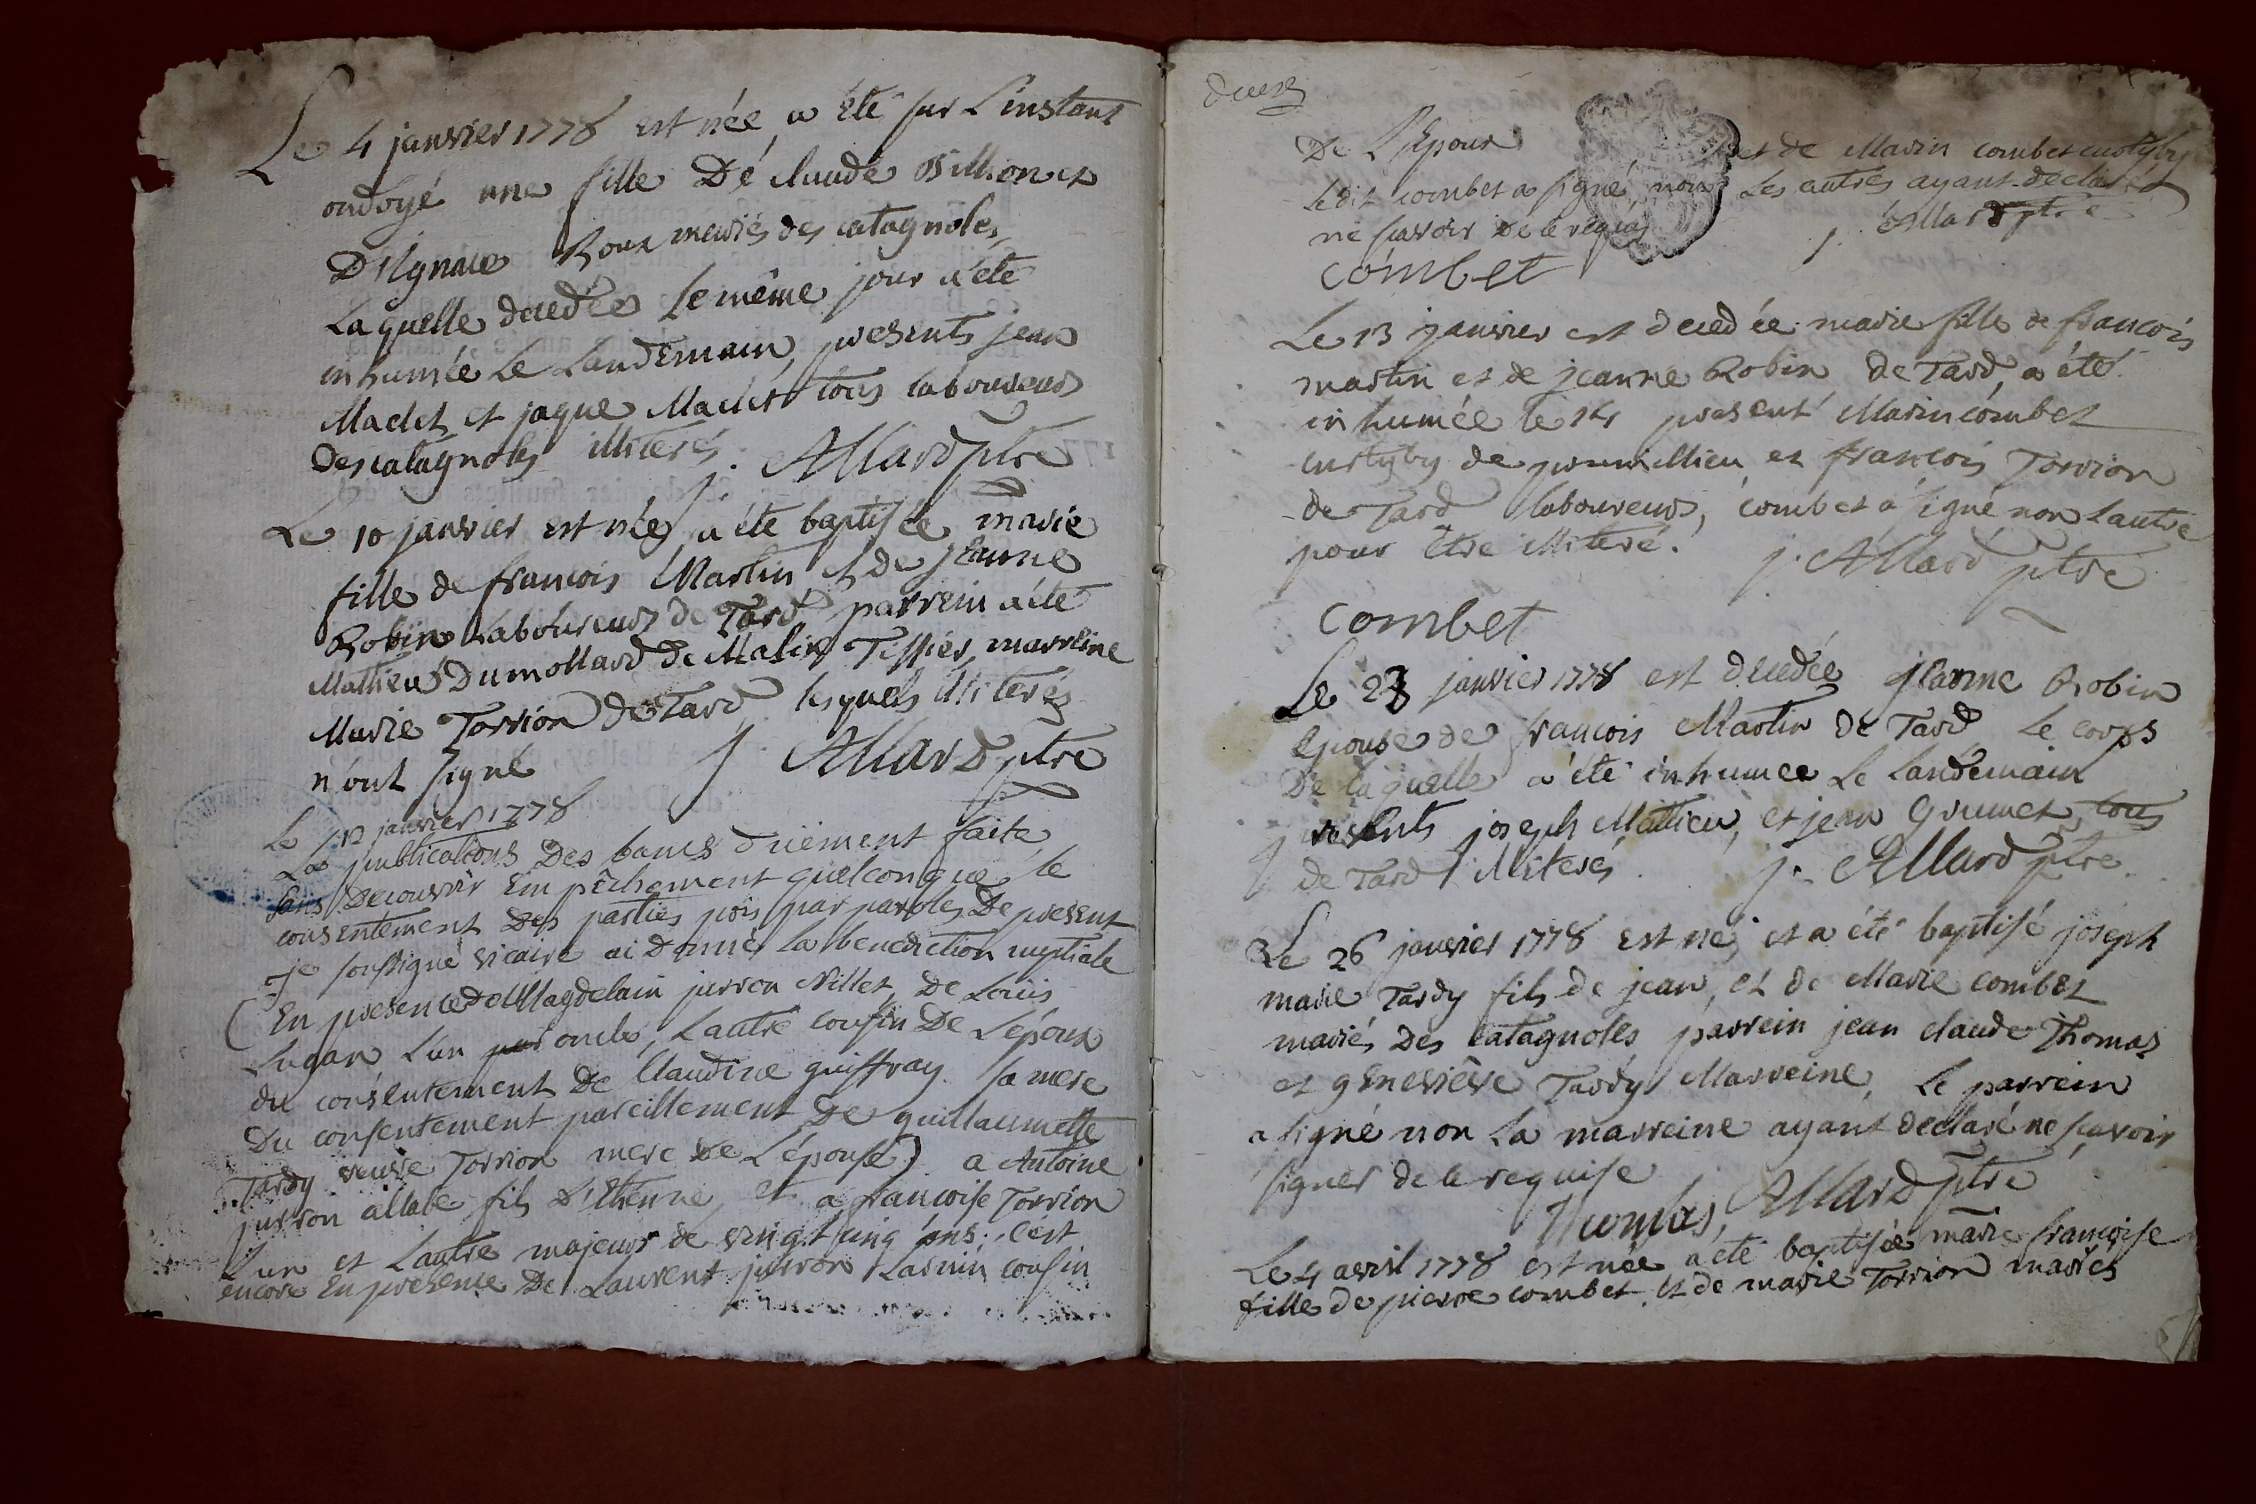 Le 4 janvier 1778 est née, a été sur L'instant
ondoyé une fille De claude Billion et
D'Ignace Roux mariés des catagnoles,
Laquelle decedée le même jour a été
inhumée Le Landemain, presents jean
Maclet et jaque Maclet tous laboureurs
Des catagnoles illiterés. j. Allard ptre
Le 10 janvier est née, a été baptisée marie
fille de francois Martin et de jeanne
Robin Laboureurs de Tard, parrein a été
Mathieu Dumollard de Malin Tissier, marreine
Marie Torrion de Tard lesquels illiterés
n'ont signé j. Allard ptre
Le 12 janvier 1778
Les publications Des bancs duement faite
sans Decouvrir Empêchement quelconque, le
consentement Des parties pris par paroles De present
je soussigné vicaire ai Donné La benediction nuptiale
(En presence de Magdelain jurron Nillet, De Louis
Lugan L'un oncle, L'autre cousin De L'époux
du consentement De Claudine guiffray sa mere
Du consentement pareillement De guillaumette
Tardy veuve Torrion mere De L'épouse) a Antoine
jurron allable fils D'Etienne, et a francoise Torrion
L'un et L'autre majeurs de vingt cinq ans; c'est
encore En presence De Laurent jurron cousin
De L'Epoux et de Marin combet custyby
Ledit combet a signé non Les autres ayant declaré
ne scavoir De le requis j. Allard ptre
combet
Le 13 janvier est decedée marie fille de francois
martin et de jeanne Robin De Tard, a été
inhumée le 14 present Marin combet
custyby de et françois Torrion
de Tard laboureurs, combet a signé non L'autre
pour être illiteré. j. Allard ptre
combet
Le 23 janvier 1778 est decedée jeanne Robin
Epouse de francois Martin de Tard Le corps
De laquelle a été inhumée Le Landemain
presents joseph Mathieu, et jean grumet, tous
de Tard illiterés. j. Allard ptre.
Le 26 janvier 1778 est né, et a été baptisé joseph
marie Tardy fils de jean, et de Marie combet
mariés Des catagnoles parrein jean claude Thomas
et genevieve Tardy Marreine, Le parrein
a signé non La marreine ayant declaré ne scavoir
signer de le requise
Thomas, Allard ptre
Le 4 avril 1778 est née a été baptisée marie francoise
fille de pierre combet et de marie Torrion mariés